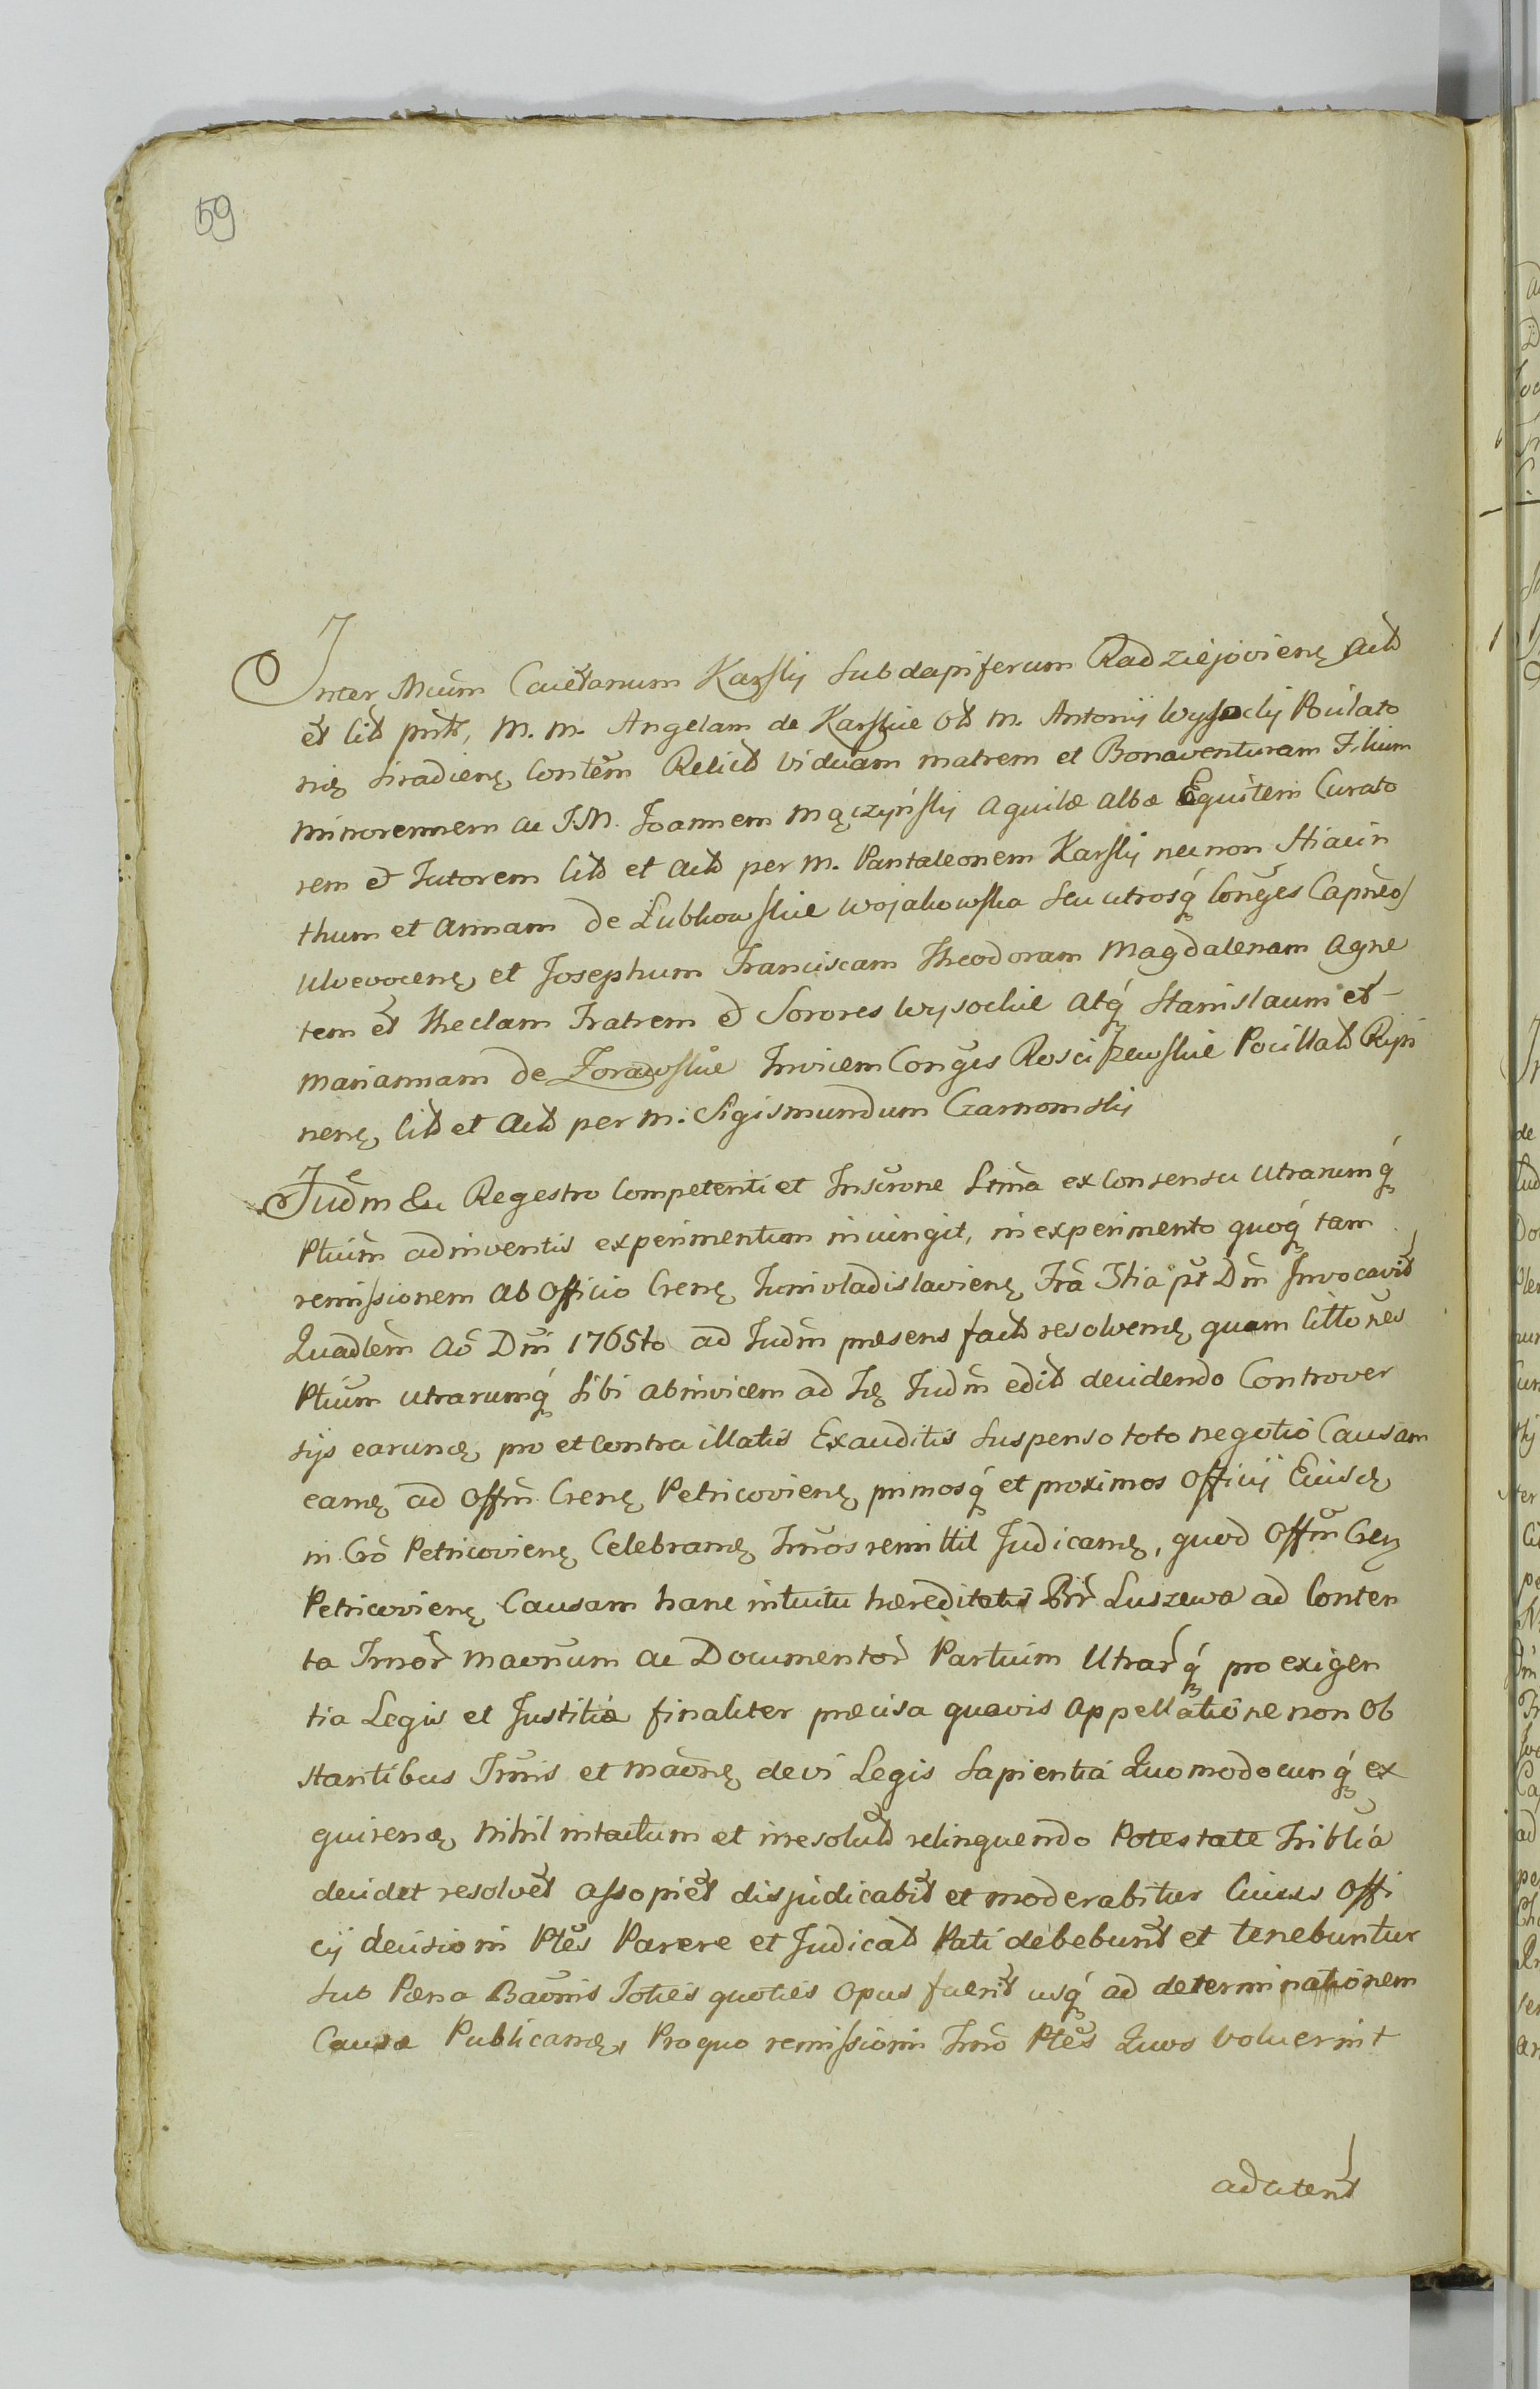 59
Inter Mcum Caietanum Karski Subdapiferum Radziejovienę Actt
et Citt pntt, M. M. Angelam de Karskie Ott M. Antonij Wysocki Pocilato
rię Siradienę Contem Relictt Viduam matrem et Bonaventuram Filium
minorennem ac J.M. Joannem Mączyński Aquilæ albæ Equitem Curato
rem et Tutorem Citt et Actt per M. Pantaleonem Karski necnon Hiacin
thum et Annam de Łubkowskie Wojakowska seu utrosq́ Conges Capneo
et Josephum Franciscam Theodoram Magdalenam Agne
tem et Theclam Fratrem et Sorores Wysockie atq́ Stanislaum et
Mariannam de Zorawskie Invicem Conges Rosciszewskie Pocillatt Rypi
nenę Citt et Actt per M. Sigismundum Czarnomski
Judm Regestro Competenti et Inscrone ex Consensu Utrarumq́
Ptium adinventis experimentum iniungit, in experimento quoq́ tam
remissionem ab Officio Crenę Junivladislavienę Fra Invocavitt
Quadlem Ao Dni 1765to ad Judm præsens factt resolvenę quam Citto nes
Ptium utrarumq́ sibi abinvicem ad Judm editt decidendo Controver
sijs earunę pro et contra illatis Exauditis Suspenso toto negotio Causam
eamę ad Offm Crenę Petricovienę primosq́ et proximos Officij Eiusdę
in Cro Petricovienę Celebranę Tmos remittit Judicanę, quod Offm Cren
Petricovienę Causam hanc intuitu hæreditatis Bor Luszewa ad Conten
ta Imor Maonum ac Documentor Partium Utrarq́ pro exigen
tia Legis et Justitiæ finaliter præcisa quavis Appellatione non Ob
stantibus Imis et maonę devi Legis Sapientia Quomodocunq́ ex
quirenę nihil intactum et irresolutt relinquendo Potestate Triblia
decidet resolvet assopiet disjudicabit et moderabitur Cuius Offi
cij decisioni Ptes Parere et Judicatt Pati debebunt et tenebuntur
Sub Pæna Baonis Toties quoties Opus fuerit usq́ ad determinationem
Causæ Publicanę, Pro quo remissioni Tmo Ptes Quos Voluerint
adciten